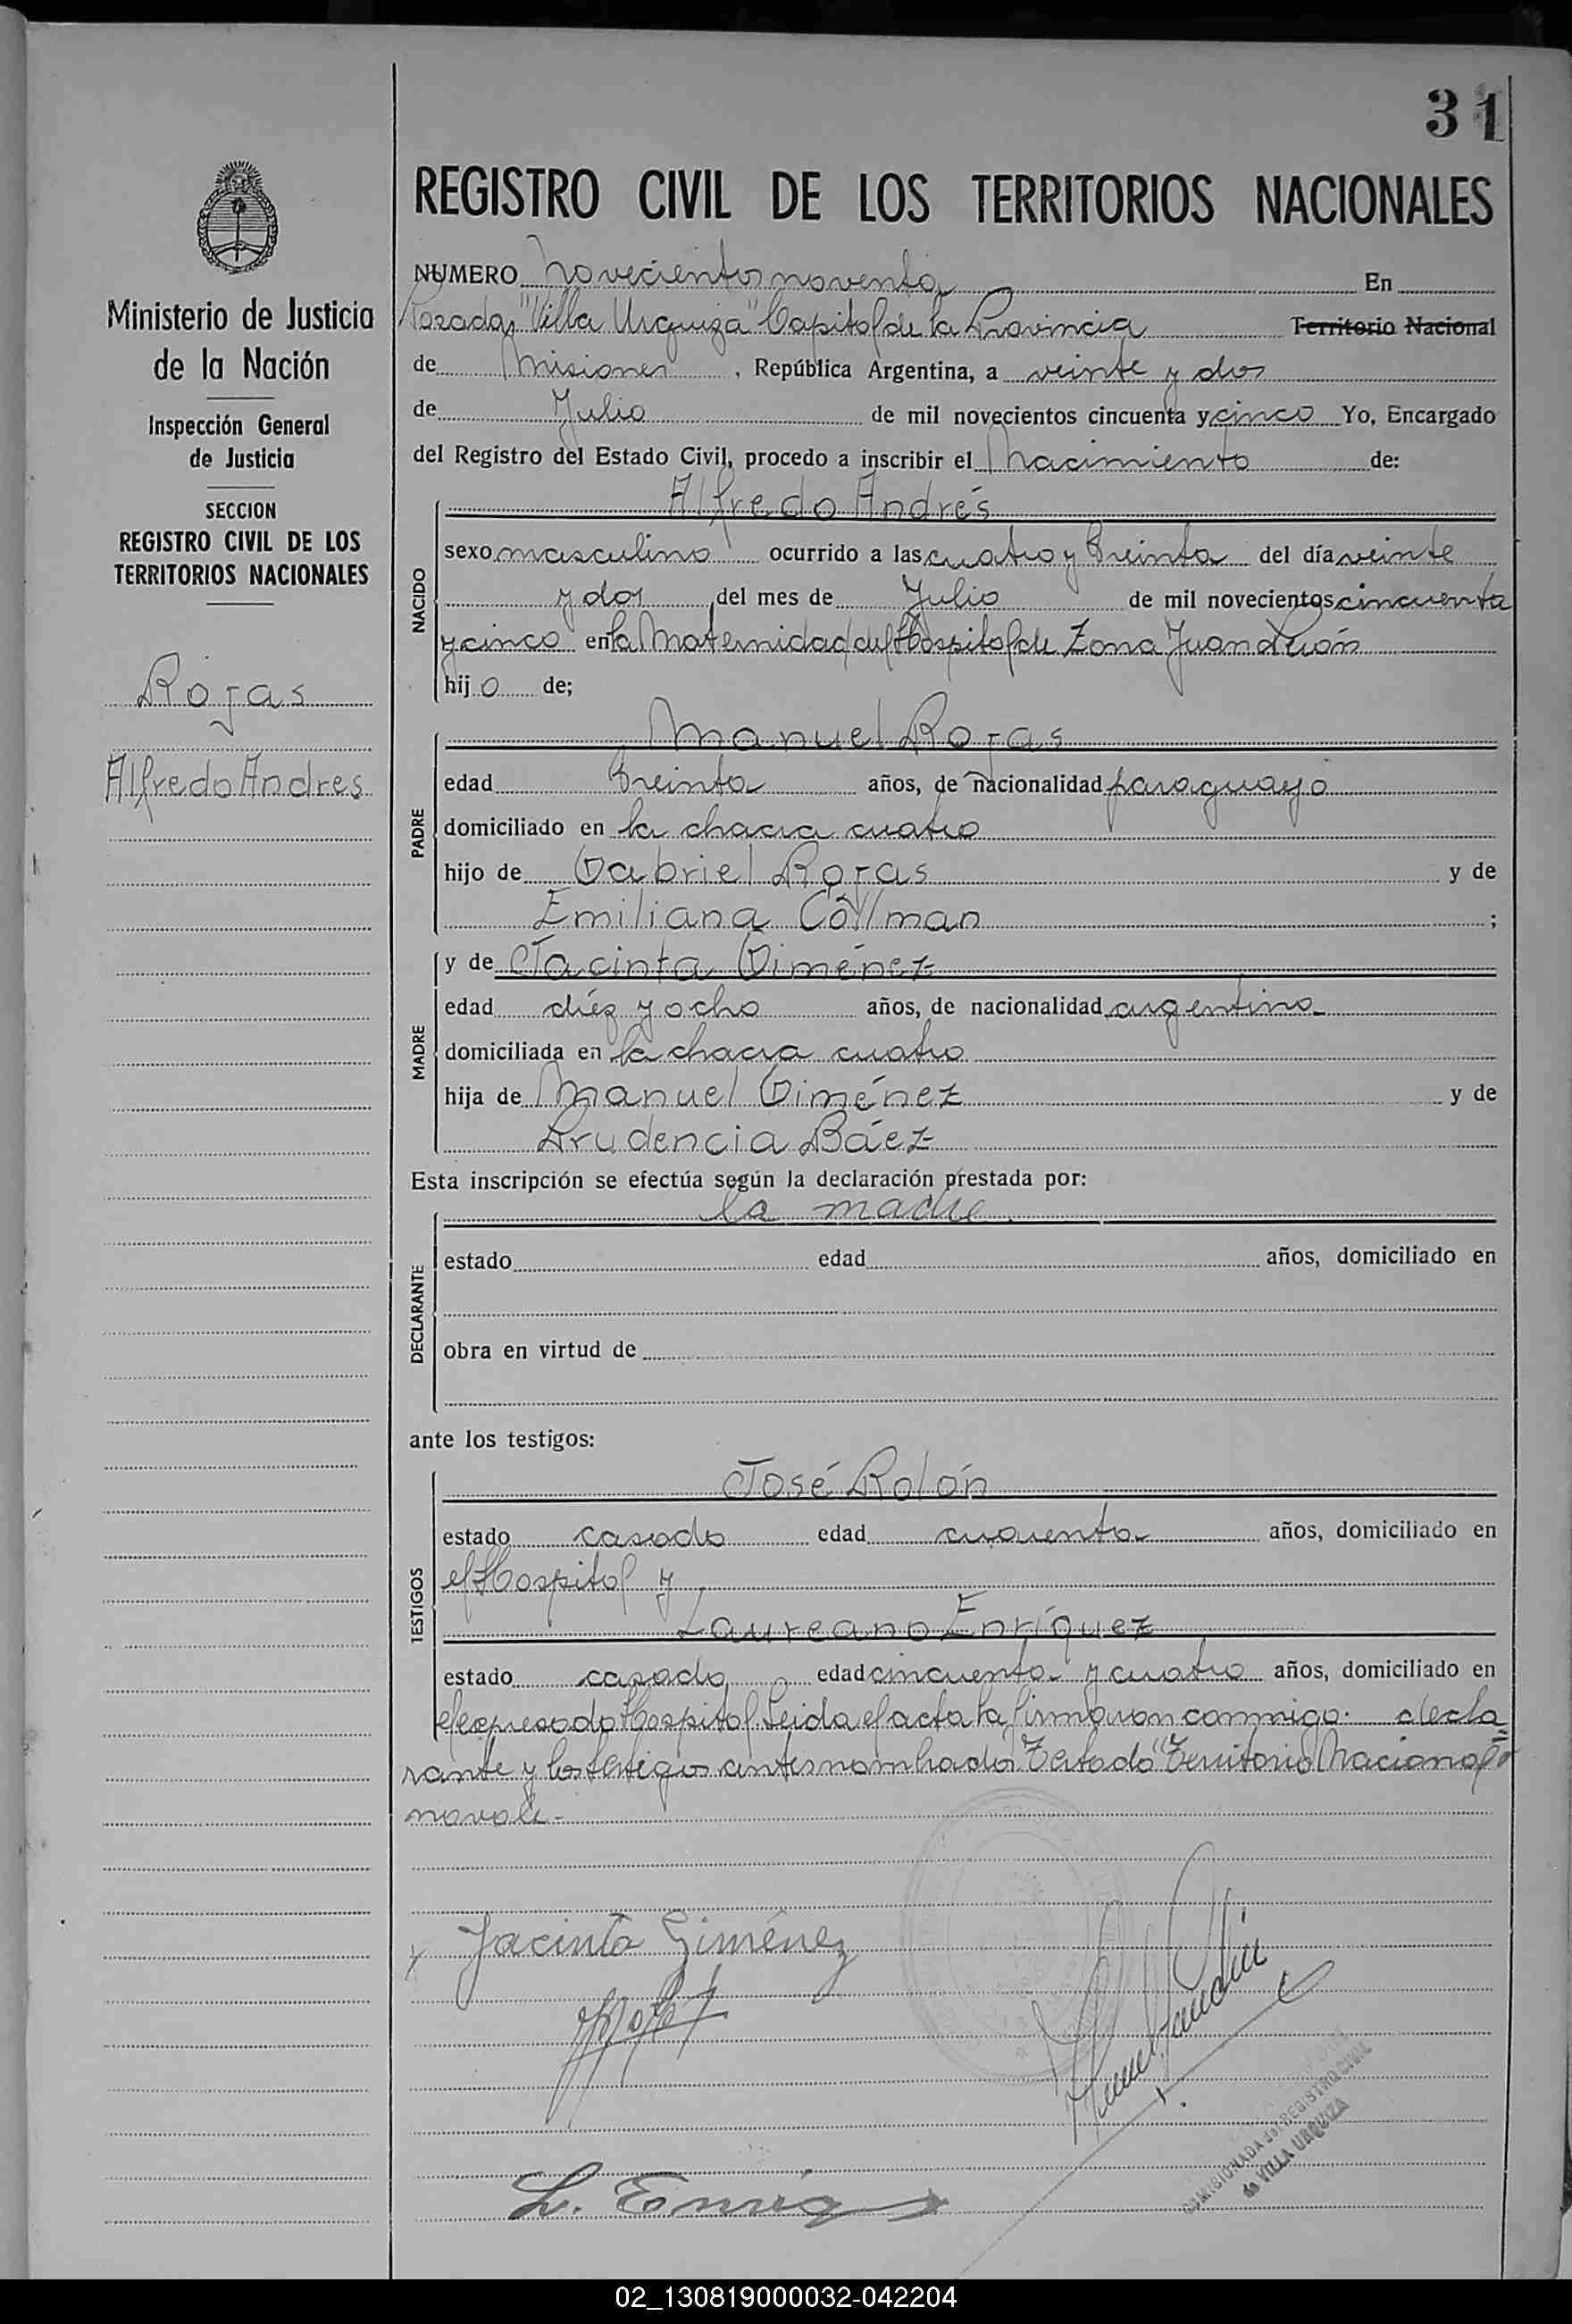 31
REGISTRO CIVIL DE LOS TERRITORIOS NACIONALES
Ministerio de Justicia
de la Nación
Inspección General
de Justicia
SECCION
REGISTRO CIVIL DE LOS
TERRITORIOS NACIONALES
Rojas
Alfredo Andres
NUMERO novecientos noventa En
Posadas "Villa Urquiza" Capital de la Provincia Territorio Nacional
de Misiones, República Argentina, a veinte y dos
de Julio de mil novecientos cincuenta y cinco Yo, Encargado
del Registro del Estado Civil, procedo a inscribir el Nacimiento de:
NACIDO
Alfredo Andrés
sexo masculino ocurrido a las cuatro y treinta del día veinte
y dos del mes de Julio de mil novecientos cincuenta
y cinco en la Maternidad del Hospital de Zona Juan Perón
hijo de;
PADRE
Manuel Rojas
edad treinta años, de nacionalidad paraguayo
domiciliado en la chacra cuatro
hijo de Gabriel Rojas y de
Emiliana Cöllman ;
MADRE
y de Jacinta Giménez
edad diéz y ocho años, de nacionalidad argentina
domiciliada en la chacra cuatro
hija de Manuel Giménez y de
Prudencia Báez
Esta inscripción se efectúa según la declaración prestada por:
DECLARANTE
la madre
estado edad años, domiciliado en
obra en virtud de
ante los testigos:
TESTIGOS
José Rolón
estado casado edad cuarenta años, domiciliado en
el Hospital y
Laureano Enríquez
estado casado edad cincuenta y cuatro años, domiciliado en
el expresado Hospital. Leida el acta la firmaron conmigo decla=
rante y los testigos antes nombrados. Testado "Territorio Nacional"
no vale -
Jacinta Giménez
L. Enriq
COMISIONADA del REGISTRO CIVIL
de VILLA URQUIZA
02_130819000032-042204